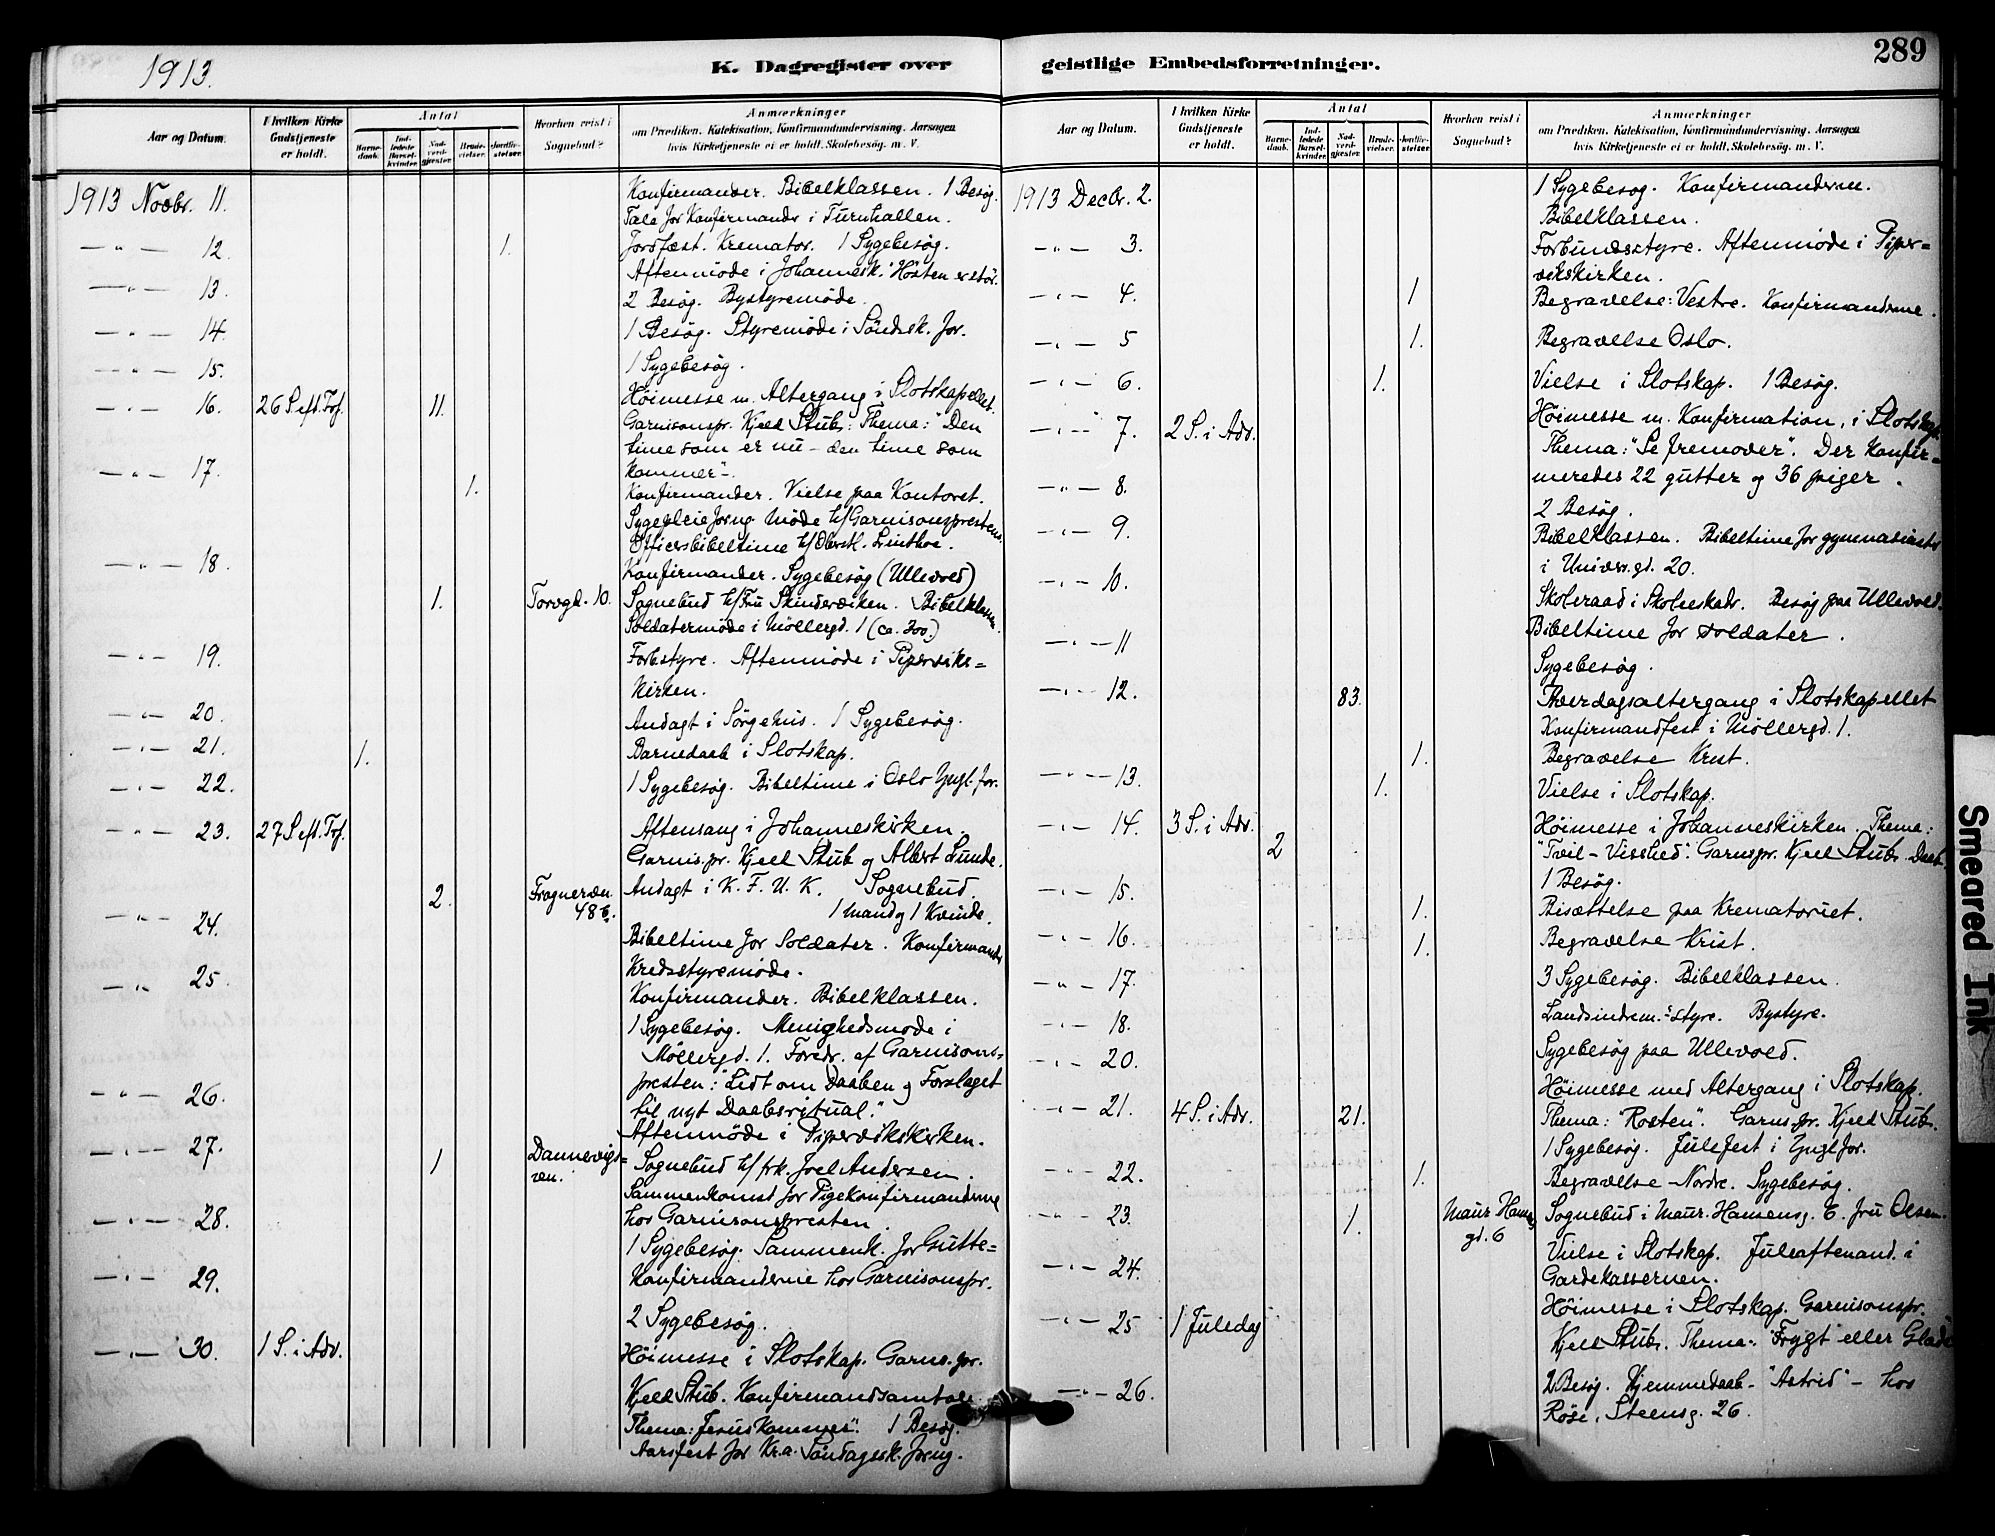 1913.
K. Dagregister over
geistlige Embedsforretninger.
289
Aar og Datum.
I hvilken Kirke Gudstjeneste er holdt.
Antal
Barnedaab.
Indledede Barselkvinder.
Nadverdgjester.
Brudevielser.
Jordfæstelser.
Hvorhen reist i Sognebud?
Anmærkninger
om Prædiken, Katekisation, Konfirmandundervisning, Aarsagen
hvis Kirketjeneste ei er holdt, Skolebesøg m. V.
1913 Novbr. 11. Konfirmander. Bibelklassen. 1 Besøg.
Tale for Konfirmandr i Turnhallen.
— " — 12. 1. Jordfæst. Kremator. 1 Sygebesøg.
Aftenmøde i Johannesk. "Høsten er stor.
— " — 13. 2 Besøg. Bystyremøde.
— " — 14. 1 Besøg. Styremøde i Søndsk. for.
— " — 15. 1 Sygebesøg.
— " — 16. 26 S eft. Tref. 11. Høimesse m. Altergang i Slotskapellet.
Garnisonspr. Kjeld Stub: Thema: "Den
time som er nu – den time som
kommer".
— " — 17. 1. Konfirmander. Vielse paa Kontoret.
Sygepleieforng. Møde h/ Garnisonspresten.
Officersbibeltime h/ Oberstl. Linthoe.
— " — 18. Konfirmander. Sygebesøg (Ullevold)
1. Torvgd. 10. Sognebud h/ Fru Skinderviken. Bibelklassen.
Soldatermøde i Møllergd. 1 (ca. 300.)
— " — 19. Forbstyre. Aftenmøde i Pipervike=
kirken.
— " — 20. Andagt i Sørgehus. 1 Sygebesøg.
— " — 21. 1. Barnedaab i Slotskap.
— " — 22. 1 Sygebesøg. Bibeltime i Oslo Yngl. for.
— " — 23. 27 S eft. Tref. Aftensang i Johanneskirken.
Garnis.pr. Kjeld Stub og Albert Lunde.
2. Frogneren 48 b. Andagt i K. F. U. K. Sognebud.
1 mand og 1 kvinde.
— " — 24. Bibeltime for Soldater. Konfirmandr
Kredsstyremøde.
— " — 25. Konfirmander. Bibelklassen.
1 Sygebesøg. Menighedsmøde i
Møllergd. 1. Foredr. af Garnisons=
presten: "Lidt om Daaben og Forslaget
til nyt Daabsritual."
— " — 26. Aftenmøde i Pipervikskirken.
— " — 27. 1 Dannevigs=
ven. Sognebud h/ frk. Joel Andersen.
Sammenkomst for Pigekonfirmanderne
hos Garnisonspresten.
— " — 28. 1 Sygebesøg. Sammenk. for Gutte=
Konfirmanderne hos Garnisonspr.
— " — 29. 2 Sygebesøg.
— " — 30. 1 S. i Adv. Høimesse i Slotskap. Garns. pr.
Kjeld Stub. Konfirmandsamtale
Thema: "Jesus kommer". 1 Besøg.
Aarsfest for Kr.a. Søndagssk. forng.
Aar og Datum.
I hvilken Kirke Gudstjeneste er holdt.
Antal
Barnedaab.
Indledede Barselkvinder.
Nadverdgjester.
Brudevielser.
Jordfæstelser.
Hvorhen reist i Sognebud?
Anmærkninger
om Prædiken, Katekisation, Konfirmandundervisning, Aarsagen
hvis Kirketjeneste ei er holdt, Skolebesøg m. V.
1913 Decbr. 2. 1 Sygebesøg. Konfirmanderne.
Bibelklassen.
— " — 3. Forbundsstyre. Aftenmøde i Piper=
vikskirken.
— " — 4. 1 Begravelse: Vestre. Konfirmanderne.
— " — 5 1. Begravelse Oslo.
— " — 6. 1. Vielse i Slotskap. 1 Besøg.
— " — 7. 2 S. i Adv. Høimesse m. Konfirmation, i Slotskap.
Thema: "Se fremover". Der konfir=
meredes 22 gutter og 36 piger.
— " — 8. 2 Besøg.
— " — 9. Bibelklassen. Bibeltime for gymnasiaster
i Univers.gd. 20.
— " — 10. Skoleraad i Skoleskadr. Besøg paa Ullevold.
Bibeltime for soldater.
— " — 11 Sygebesøg.
— " — 12. 83. Hverdagsaltergang i Slotskapellet
Konfirmandfest i Møllergd. 1.
1. Begravelse Krist.
— " — 13. 1. Vielse i Slotskap.
— " — 14. 3 S. i Adv. 2 Høimesse i Johanneskirken. Thema:
"Tvil – Visshed". Garns.pr. Kjeld Stub. Daab.
— " — 15. 1 Besøg.
1. Bisættelse paa Krematoriet.
— " — 16. 1. Begravelse Krist.
— " — 17. 3 Sygebesøg. Bibelklassen.
— " — 18. Landsindrem.=styre. Bystyre.
— " — 20. Sygebesøg paa Ullevold.
— " — 21. 4 S. i Adv. 21. Høimesse med Altergang i Slotskap.
Thema: "Rosten". Garns. pr. Kjeld Stub.
1 Sygebesøg. Julefest i Yngl for.
— " — 22. 1. Begravelse – Nordre. Sygebesøg.
— " — 23. 1. Maur. Hansens gd. 6 Sognebud i Maur. Hansensg. 6. fru Olsen.
— " — 24. Vielse i Slotskap. Juleaftenand. i
Gardekassernen.
— " — 25 1 Juledag Høimesse i Slotskap. Garnisonspr.
Kjeld Stub. Thema: "Frygt" eller Glæde
— " — 26. 2 Besøg. Hjemmedaab – "Astrid" – hos
Røse, Steensg. 26.
Smeared Ink